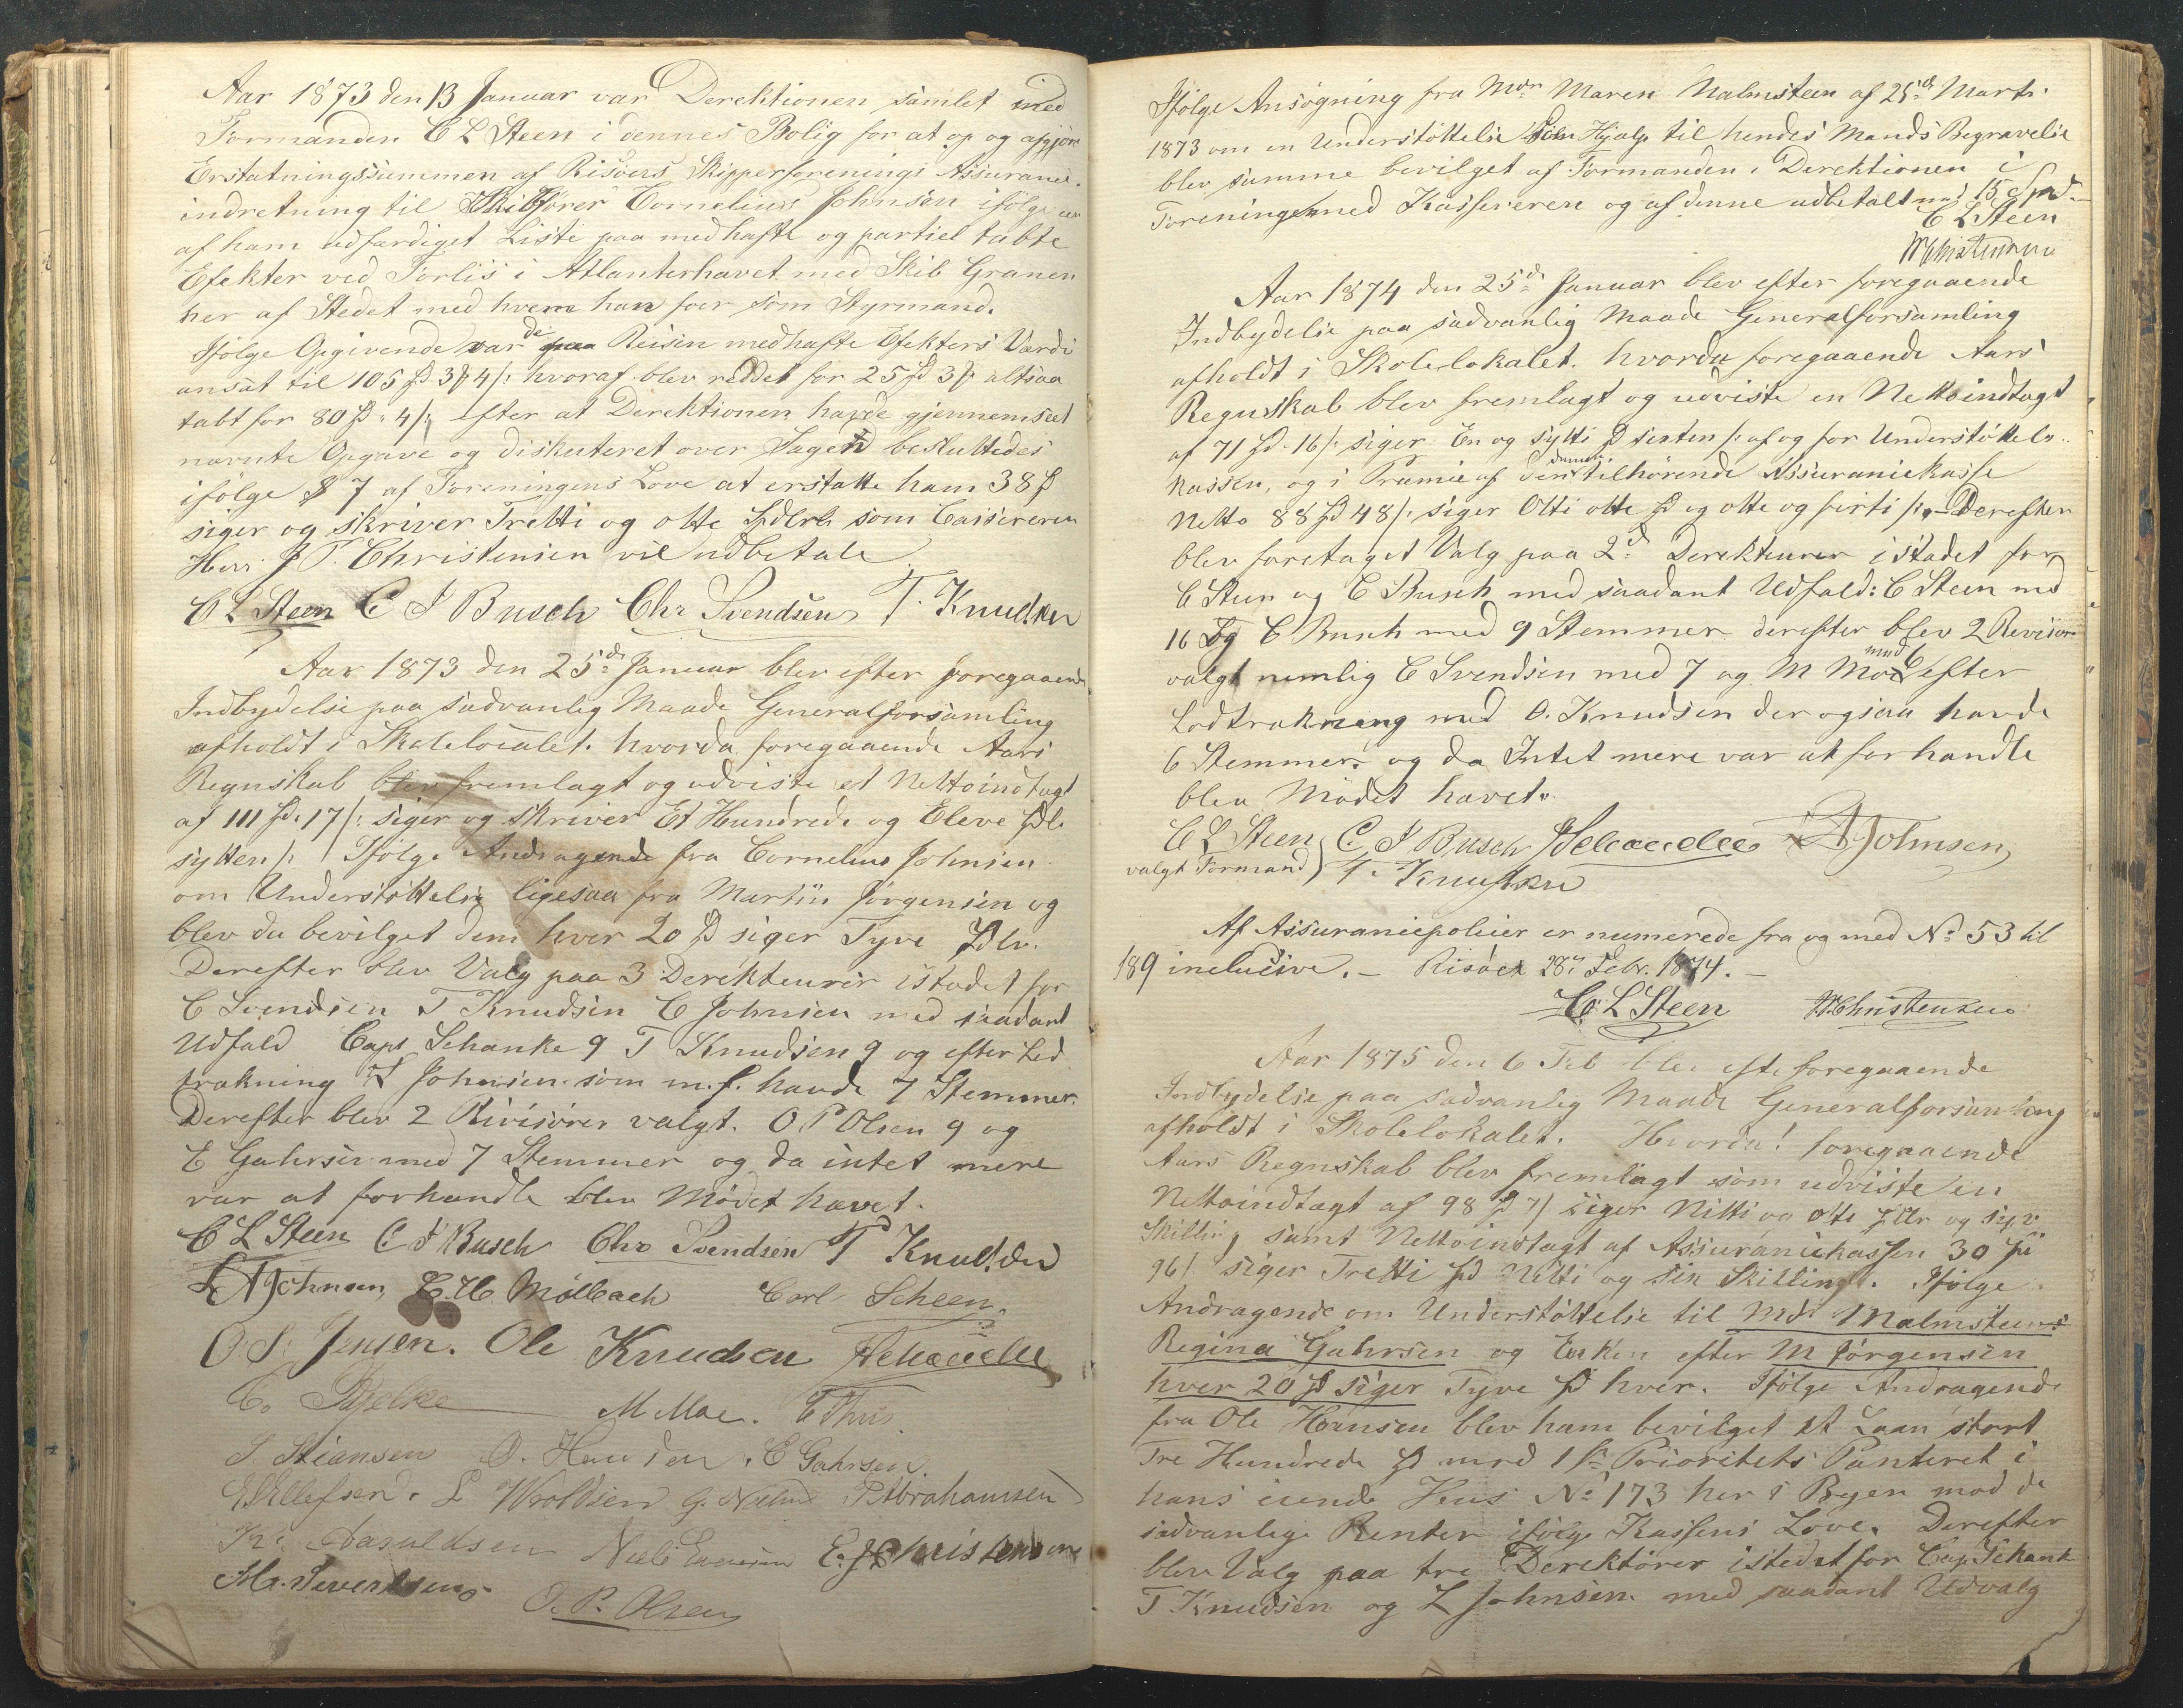 Aar 1873 den 13 Januar var Derektionen samlet med
Formanden C L Steen i dennes Bolig for at op og afgjöre
Erstatningssummen af Risöers Skipperforenings Assurance.
indretning til Skibsförer Cornelius Johnsen ifölge en
af ham udfærdiget Liste paa medhafte og partiel tabte
Efekter ved Forliis i Atlanterhavet med Skib Granen
her af Stedet med hvem han foer som Styrmand.
Ifölge Opgivende var de paa Reisen medhafte Efekters Værdi
ansat til 105 Spd 3 # 4 /: hvoraf blev reddet for 25 Spd 3 # altsaa
tabt for 80 Spd. 4 /: efter at Derektionen havde gjennemseet
nævnte Opgave og diskuteret over Sagen besluttedes
ifölge § 7 af Foreningens Love at erstatte ham 38 Spd
siger og skriver Tretti og otte Spdlr som Cassereren
Herr J P. Christensen vil udbetale
C L Steen C J Busch Chr Svendsen T. Knudsen
Aar 1873 den 25de Januar blev efter foregaaende
Indbydelse paa sædvanlig Maade Generalforsamling
afholdt i Skolelocalet. hvorda foregaaende Aars
Regnskab blev fremlagt og udviste et Nettoindtægt
af 111 Spd. 17 /: siger og skriver Et Hundrede og Eleve Spdl.
sytten /: Ifölge Andragende fra Cornelius Johnsen
om Understöttelse ligesaa fra Martin Jörgensen og
blev da bevilget dem hver 20 Spd siger Tyve Spdlr.
Derefter blev Valg paa 3 Derekteurer istedet for
C Svendsen T Knudsen C Johnsen med saadant
Udfald Capt Schanke 9 T Knudsen 9 og efter Lod
trækning L Johnsen som m. f. havde 7 Stemmer.
Derefter blev 2 Rivisorer valgt. O P Olsen 9 og
E Gahrsen med 7 Stemmer og da intet mere
var at forhandle blev Mödet hævet.
C L Steen C J Busch Chr Svendsen T Knudsen
L A Johnsen Mölbach Carl Scheen.
O S. Jensen. Ole Knudsen
M Moe.
S. Stiansen O. Hansen. E Gahrsen.
E Ellefsen. L Woldsen P Abrahamsen
Daraldsen Christensen
M. Sivertsen O. P. Olsen
Ifölge Ansögning fra Mdm Maren Malmsteen af 25de Marts
1873 om en Understöttelse som Hjælp til hendes Mands Begravelse
blev samme bevilget af Formanden i Derektionen i
Foreningen med Kassereren og af denne udbetalt med 15 Spd.
C L Steen
Christensen
Aar 1874 den 25de Januar blev efter foregaaende
Indbydelse paa sædvanlig Maade Generalforsamling
afholdt i Skolelokalet. hvorda foregaaende Aars
Regnskab blev fremlagt og udviste en Nettoindtægt
af 71 Spd. 16 /: siger En og sytti Spd sexten /: af og for Understöttels..
kassen, og i Præmie af den tilhörende Assurancekasse
Netto 88 Spd 48 /: siger Otti otte Spd og otte og firti /: - Derefter
blev foretaget Valg paa 2de Derekteurer i stedet for
C Steen og C Busch med saadant Udfald: C Steen med
16 Og C Busch med 9 Stemmer derefter blev 2 Revisor
valgt nemlig C Svendsen med 7 og M Moe med 6 efter
Lodtrækning med O. Knudsen der ogsaa havde
6 Stemmer. og da Intet mere var at forhandle
blev Mödet hævet.
C L Steen C. J Busch L A Johnsen
valgt Formand T. Knudsen
Af Assurancepolicer er numerede fra og med No 53 til
189 inclusive. - Risöer 28de Febr. 1874. -
C. L Steen Christensen
Aar 1875 den 6 Feb blev efte foregaaende
Indbydelse paa sædvanlig Maade Generalforsamling
afholdt i Skolelokalet. Hvorda! foregaaende
Aars Regnskab blev fremlagt som udviste en
Nettoindtægt af 98 Spd 7 / siger Nitti og otte Spdlr og syv
Skilling samt Nettoindtægt af Assurancekassen 30 Spd
96 / siger Tretti Spd Nitti og six Skilling. Ifölge
Andragende om Understöttelse til Md. Malmsteens
Regina Gahrsen og Enken efter M Jörgensen
hver 20 Spd siger Tyve Spd hver. Ifölge Andragende
fra Ole Hansen blev ham bevilget et Laan stort
Tre Hundrede Spd mod 1ste Prioritets Panteret i
hans eiende Huus No 173 her i Byen mod de
sædvanlige Renter ifölge Kassens Love. Derefter
blev Valg paa tre Derektörer istedetfor Cap. Schank
T Knudsen og L Johnsen. med saadant Udvalg